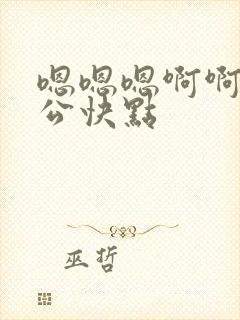 嗯嗯嗯啊啊
公快點
巫哲